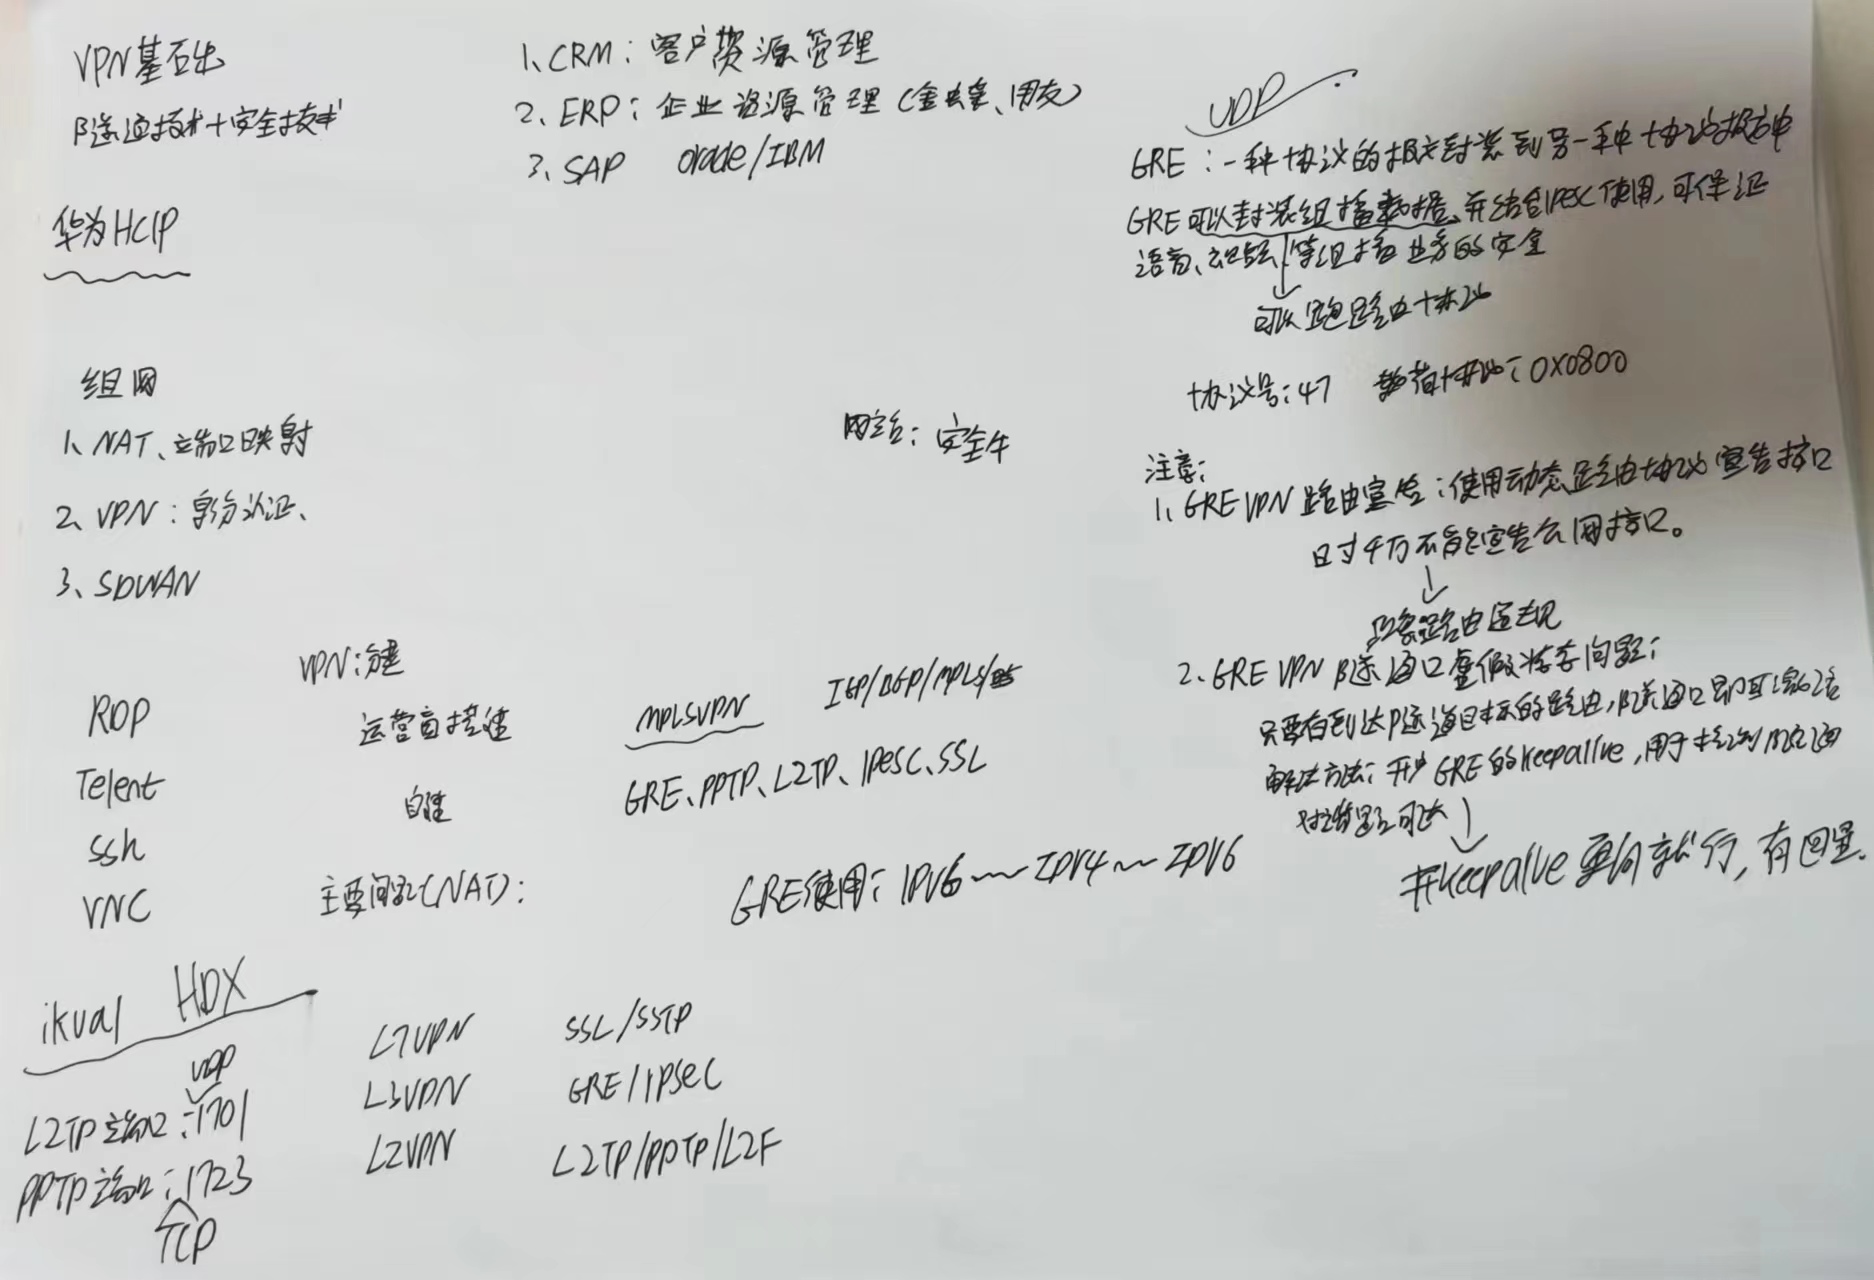 VPN基础
隧道技术+安全技术
华为HCIP
1、CRM：客户资源管理
2、ERP：企业资源管理（金蝶、用友）
3、SAP oracle/IBM
组网
1、NAT、端口映射
2、VPN：身份认证、
3、SDWAN
网站：安全牛
UDP
GRE：一种协议的报文封装到另一种协议报文中
GRE可以封装组播数据，并结合IPESC使用，可保证
语音、视频等组播业务的安全
可以跑路由协议
协议号：47 载荷协议：0X0800
注意：
1、GRE VPN路由宣告：使用动态路由协议宣告接口
时千万不能宣告公网接口。
路由
2、GRE VPN隧道口虚假状态问题：
只要有到达隧道目标的路由，隧道口即可激活
解决方法：开启GRE的keepalive，用于检测隧道
对端是否可达
#keepalive 单向就行，有回显.
RDP
Telent
ssh
VNC
VPN：
运营商搭建
MPLSVPN
IGP/BGP/MPLS/
自建
GRE、PPTP、L2TP、IPESC、SSL
主要问题(NAT)：
GRE使用：IPV6～IPV4～IPV6
ikual HDX
UDP
L2TP端口：1701
PPTP端口：1723
TCP
L7VPN SSL/SSTP
L3VPN GRE/IPSEC
L2VPN L2TP/PPTP/L2F